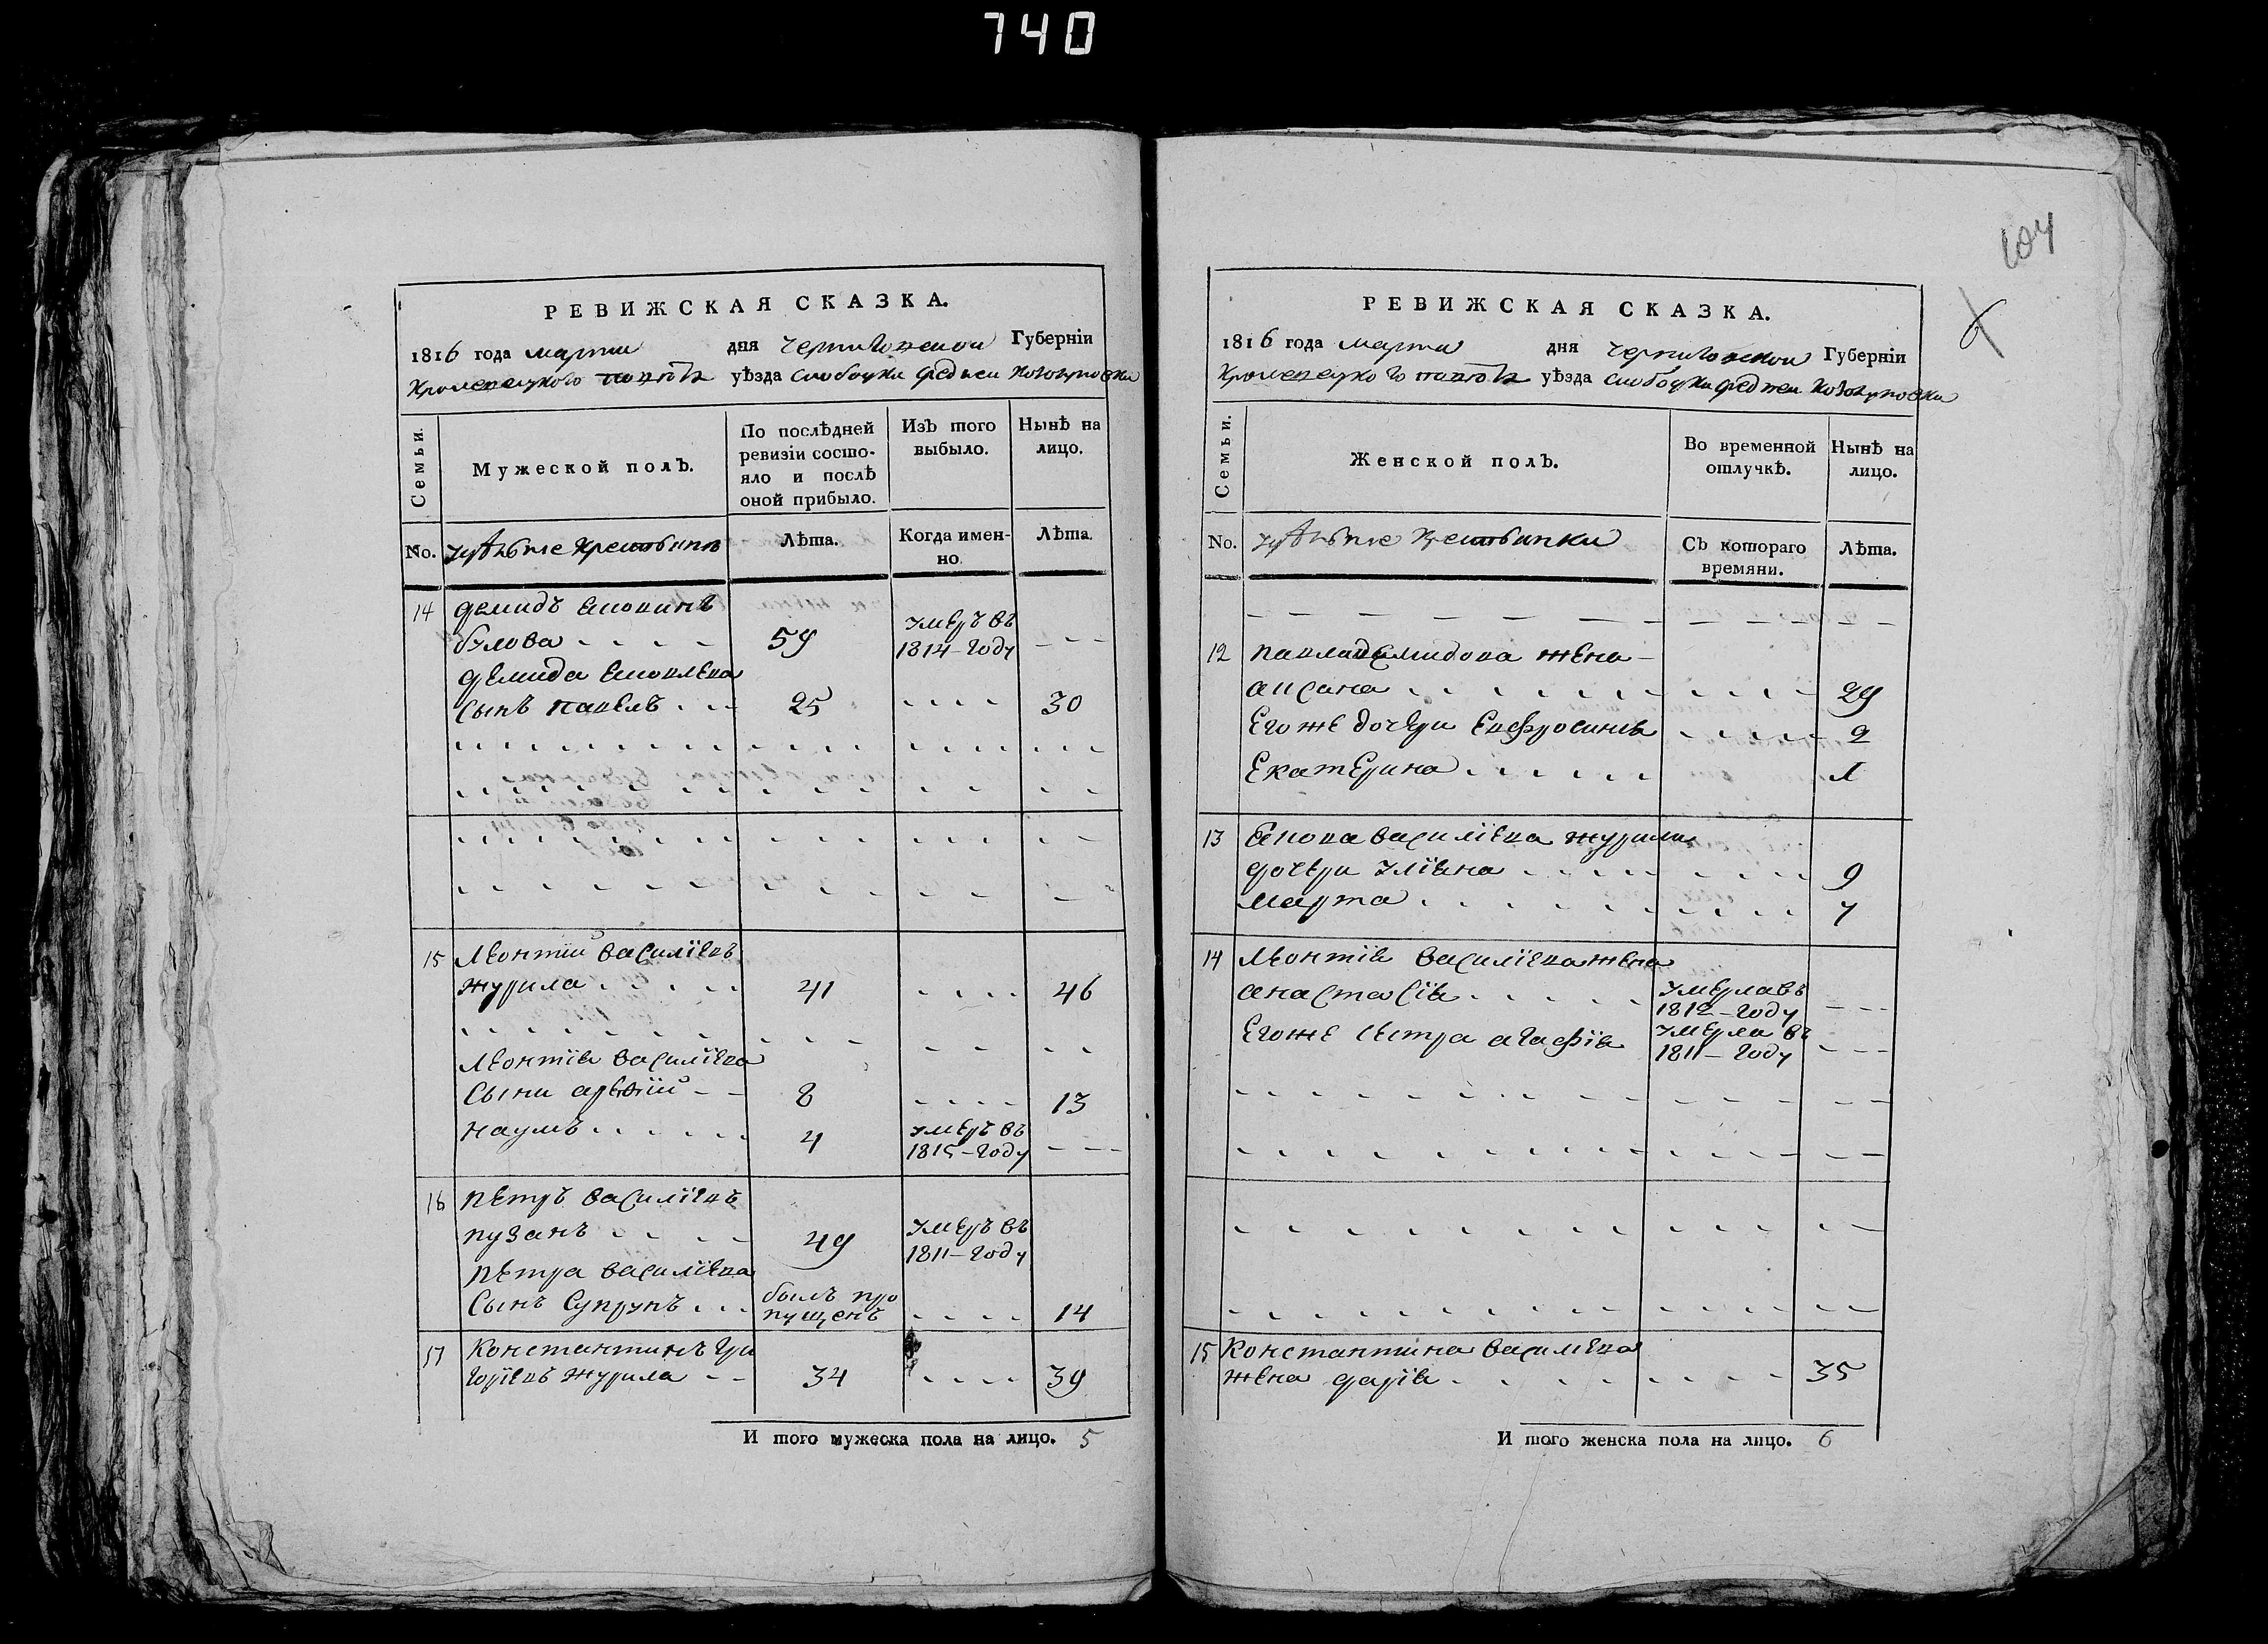 740
104
6
РЕВИЖСКАЯ СКАЗКА.
1816 года марта дня Черниговской Губерніи
Кролевецкого повѣта уѣзда слободки
Семьи.
Мужеской полъ.
По послѣдней ревизіи состо-
яло и послѣ
оной прибыло.
Изъ того
выбыло.
Нынѣ на
лицо.
No.
Лѣта.
Когда имен-
но.
Лѣта.
14 Демидъ
булова 59 умеръ въ 1814-году
Демида
сынъ павелъ 25 30
15 Леонтій василіевъ
журила 41 46
Леонтія василіева
сыни 8 13
наумъ 4 умеръ въ 1815-году
16 петръ василіевъ
пузанъ 49 умеръ въ 1811-году
петра василіева
сынъ супрунъ былъ про
пущенъ 14
17 Константинъ гри
горіевъ журила 34 39
И того мужеска пола на лицо. 5
РЕВИЖСКАЯ СКАЗКА.
1816 года марта дня Черниговской Губерніи
Кролевецкого повѣта уѣзда слободки
Семьи.
Женской полъ.
Во временной
отлучкѣ.
Нынѣ на
лицо.
No.
Съ котораго
времяни.
Лѣта.
12 павла демидова жена
29
Его же дочери Евфросинія 2
Екатерина 1
13 василіева журили
дочери 9
марта 7
14 Леонтія василіева жена
анастасія умерла въ 1812-году
Его же сестра агафія умерла въ 1811-году
15 Константина василіева
жена дарія 35
И того женска пола на лицо. 6